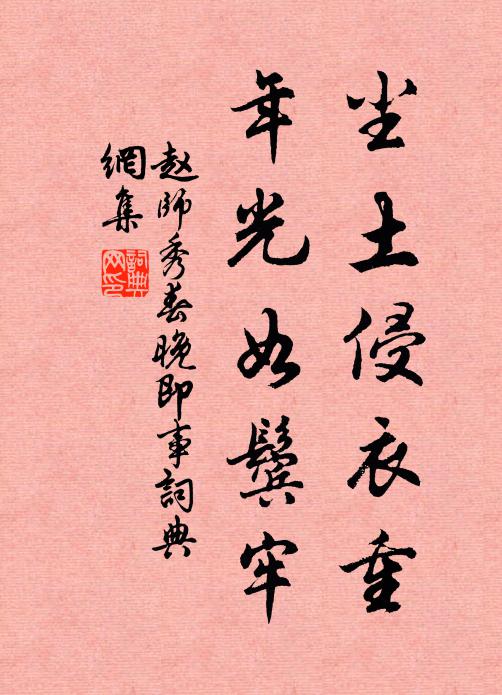 尘土侵衣重
年光如鬓牢
赵师秀春晚即事词典
網集
詞典网印